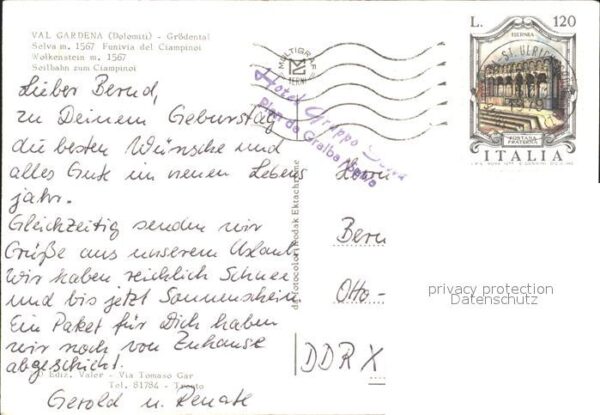 VAL GARDENA (Dolomiti) - Grödental
Selva m. 1567 Funivia del Ciampinoi
Wolkenstein m. 1567
Seilbahn zum Ciampinoi
Lieber Bernd,
zu Deinem Geburstag
die besten Wünsche und
alles Gute im neuen Lebens
jahr.
Gleichzeitig senden wir
Grüße aus unserem Urlaub.
Wir haben reichlich Schnee
und bis jetzt Sonnenschein.
Ein Paket für Dich haben
wir noch von Zuhause
abgeschickt.
Gerold u. Renate
Ediz. Valer - Via Tomaso Gar
Tel. 81784 - Trento
da fotocolor Kodak Ektachrome
MULTIGRAF
TERNI
Hotel Gruppo
Plan de Gralba
L. 120
ISERNIA
FONTANA
FRATERNA
ITALIA
ST. ULRICH
1979
Herrn
Bern
Otto-
DDR X
privacy protection
Datenschutz